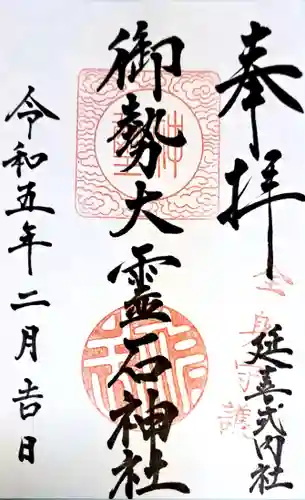 奉拝
延喜式内社
全身守護
御勢大靈石神社
令和五年二月吉日